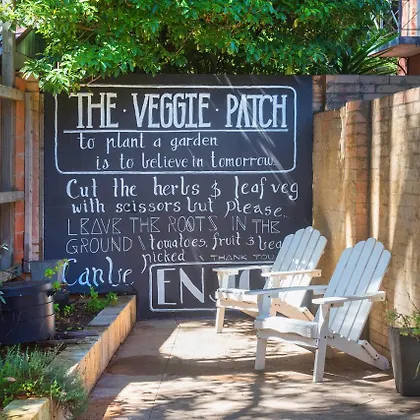 THE · VEGGIE · PATCH
to plant a garden
is to believe in tomorrow.
Cut the herbs & leaf veg
with scissors but please..
LEAVE THE ROOTS IN THE
GROUND \ tomatoes, fruit & bea
Can be picked \ THANK YOU
EN